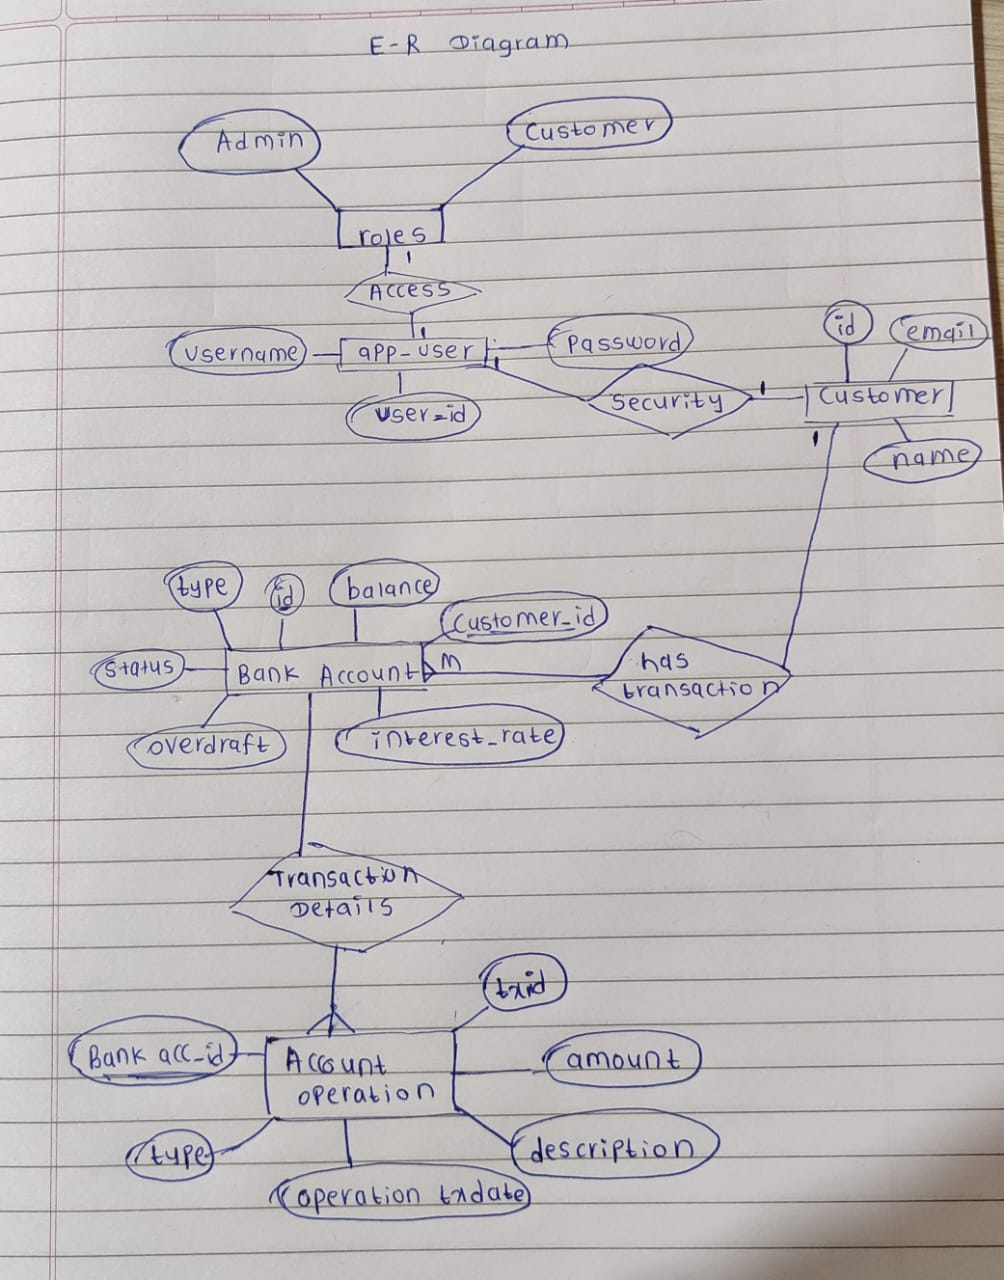 E-R Diagram
Admin
Customer
roles
1
Access
1
username
app-user
password
user-id
1
Security
1
id
email
Customer
name
1
type
id
balance
Customer_id
status
Bank Account
M
has
transaction
overdraft
interest_rate
Transaction
Details
txid
Bank acc-id
Account
operation
amount
type
description
operation txdate